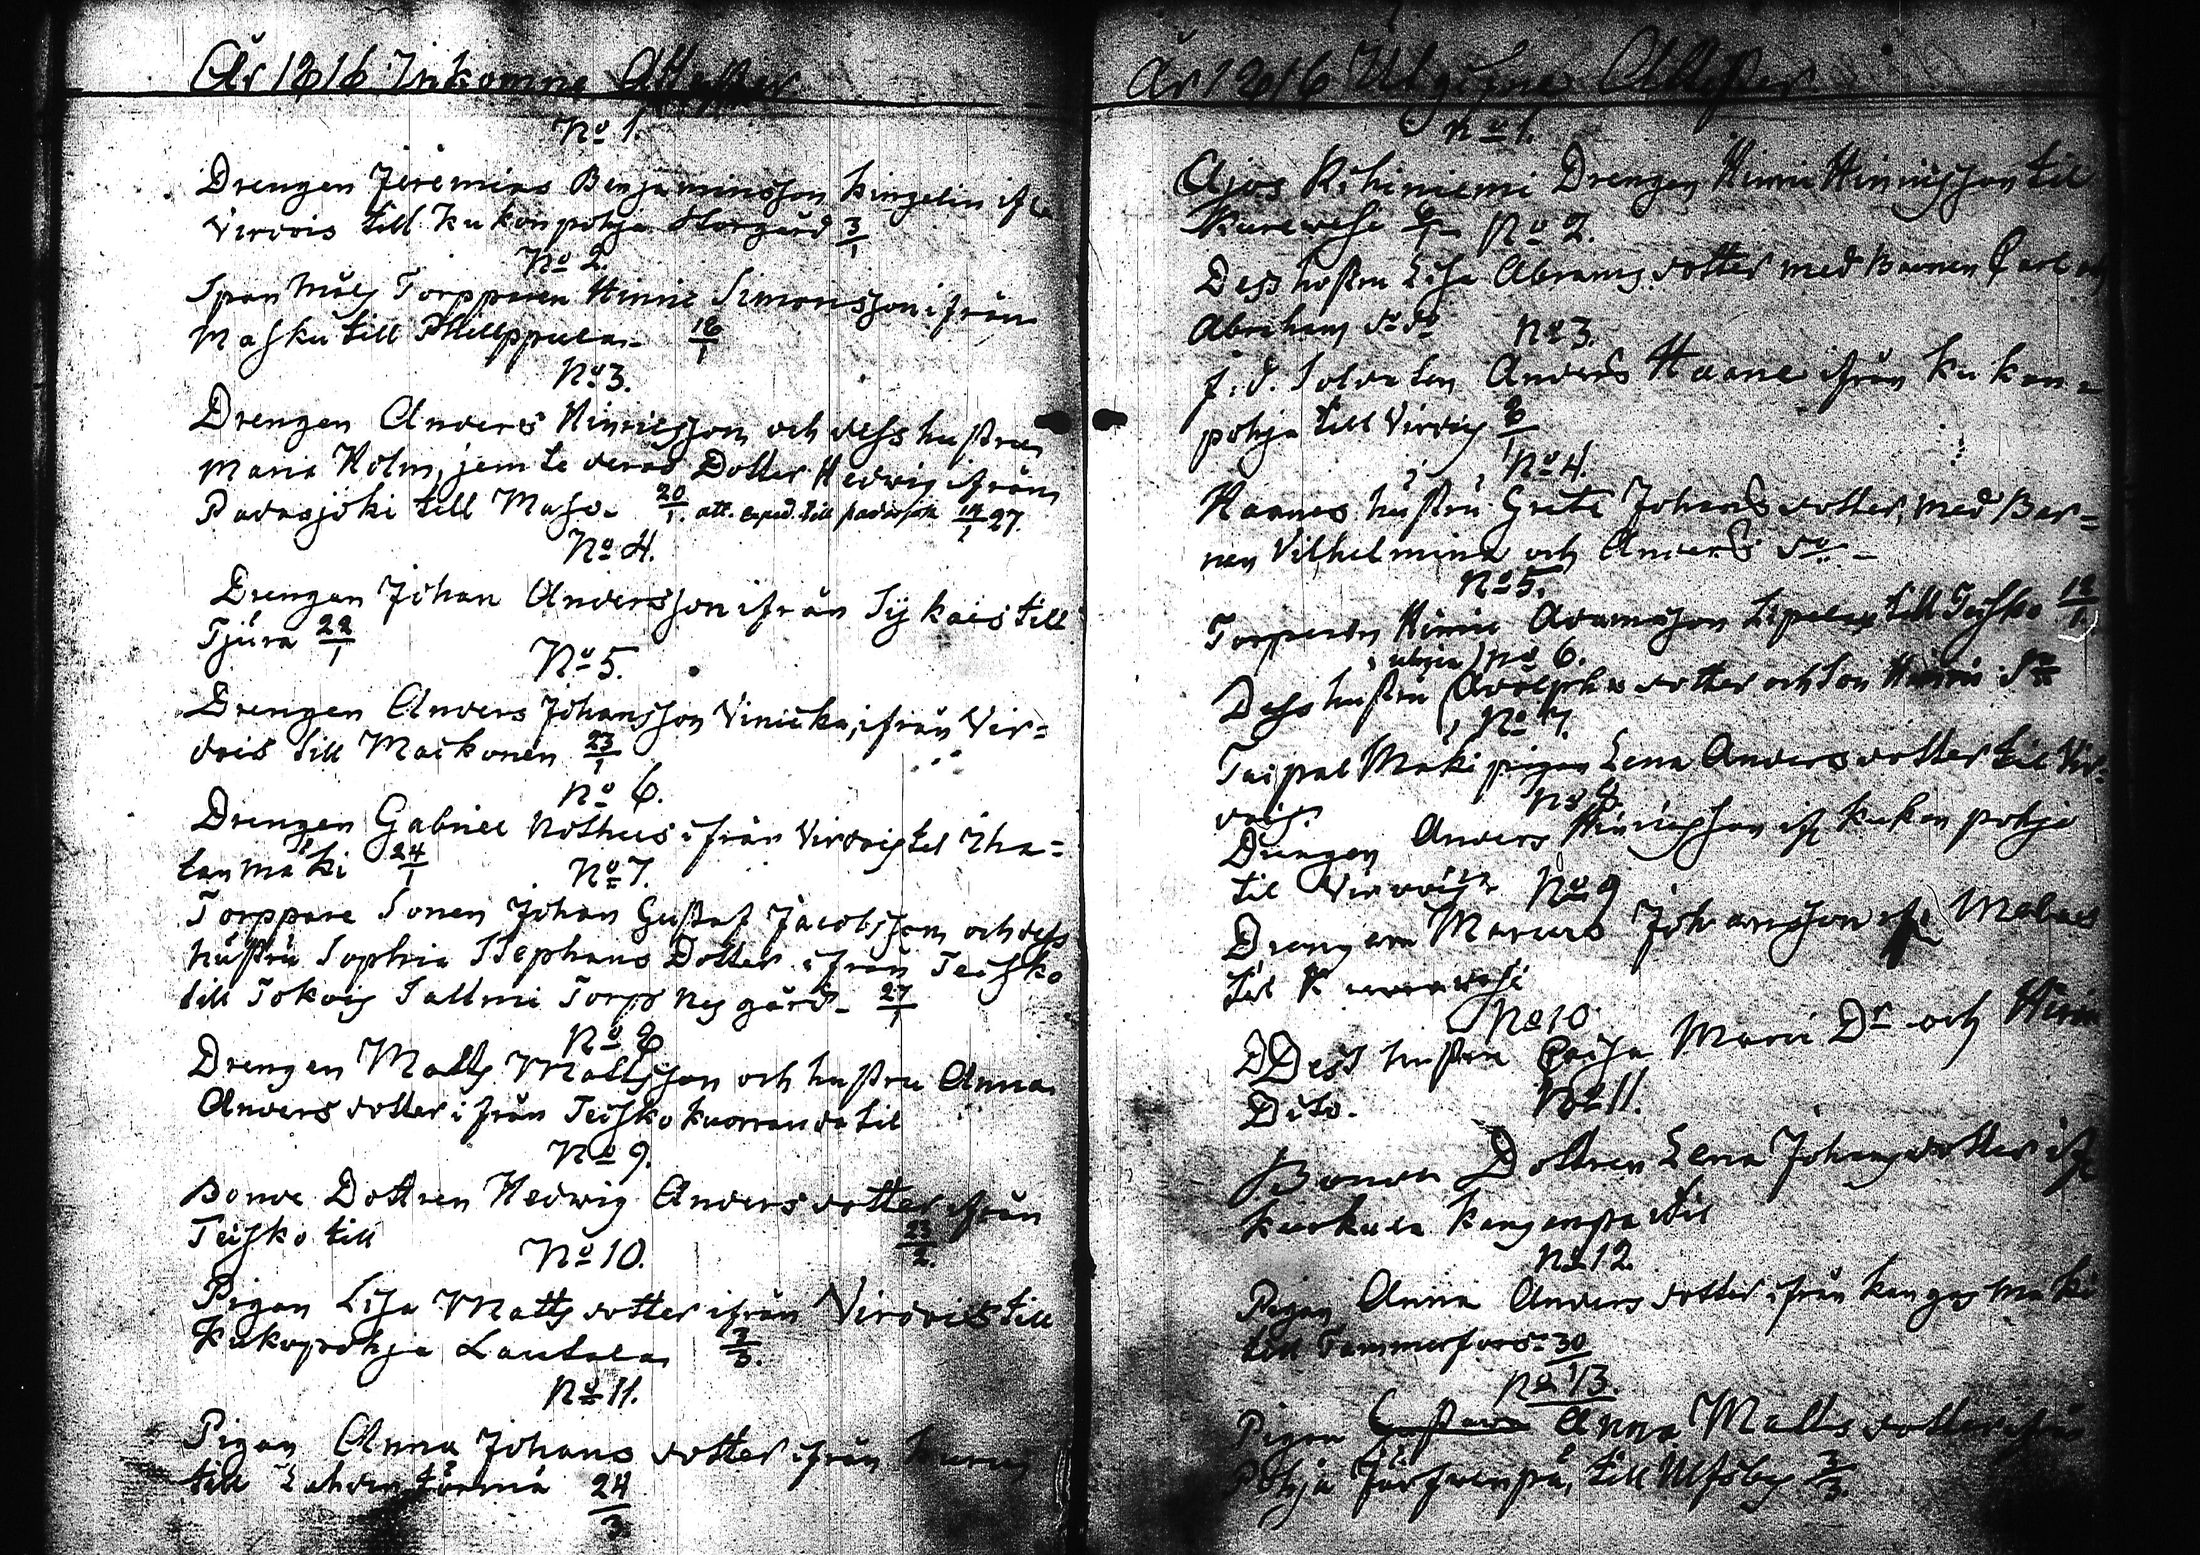 År 1816 Inkomne Attester
No 1.
Drengen Jeremias Benjaminsson Kingelin ifr
Virdois till Kukonpohja Storgård 3/1
No 2.
Span Målg Torpparen Hinric Simonsson ifrån
Masku till Phillppula 18/1
No 3.
Drengen Anders Hinricsson och dess hustru
Maria Holm, jemte deras Dotter Hedvig ifrån
Padasjoki till Maso. 20/1. att. exped. till padasjoki 14/1 27.
No 4.
Drengen Johan Andersson ifrån Sykais till
Tjura 22/1
No 5.
Drengen Anders Johansson Vinicka, ifrån Vir=
dois till Maikonen 23/1
No 6.
Drengen Gabriel Nothus ifrån Virdois til Iha=
lan mäki 24/1
No 7.
Torppare Sonen Johan Gustaf Jacobsson och dess
hustru Sophia Stephans Dotter ifrån Teisko
till Tokvig Sallmi Torp Nygård 27/1
No 8
Drengen Matts Mattsson och hustru Anna
Anders dotter ifrån Teisko Kuorranda til
No 9.
Bonde Dottren Hedwig Anders dotter ifrån
Teisko till 23/2.
No 10.
Pigan Lisa Matts dotter ifrån Virdois till
Kukopohja Lautala 3/3.
No 11.
Pigan Anna Johans dotter ifrån Kuru
till Lahden törmä 24/3
År 1816 Utgifne Attester
No 1.
Ajos Rihiniemi Drengen Hinric Hinricsson til
Kurewesi
No 2.
Dess hustru Lisa Abrams dotter med Barnen Carl och
Abraham do do
No 3.
f. d. Soldaten Anders Haane ifrån Kukon=
pohja till Virdois 8/1
No 4.
Haanes hustru Greta Johans dotter, med Bar=
nen Vilhelmina och Anders do
No 5.
Torparen Hinric Adamsson Lepelax till Teisko 12/1
No 6.
Dess hustru Adolphs dotter och Son Hinric do
No 7.
Taipal Mäki pigan Lena Anders dotter til Vir=
dois.
No 8.
Drengen Anders Hinricsson ifr Kukonpohja
til Virdois
No 9
Drengen Marcus Johansson ifr
til Kurewesi
No 10
Dess hustru Caisa Maria Dr och
Dito.
No 11.
Bonde Dottren Lena Johans dotter ifr
til
No 12.
Pigan Anna Anders dotter ifrån Kangas mäki
till Tammerfors 30/1
No 13.
Pigan Gustava Anna Matts dotter ifrån
Pohja Järfwenpä, till Ulfsby 3/3.